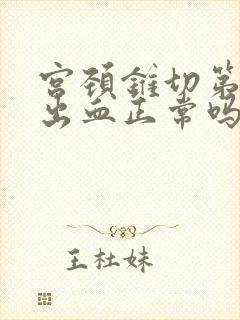 宫颈锥切第
出血正常吗
王杜妹